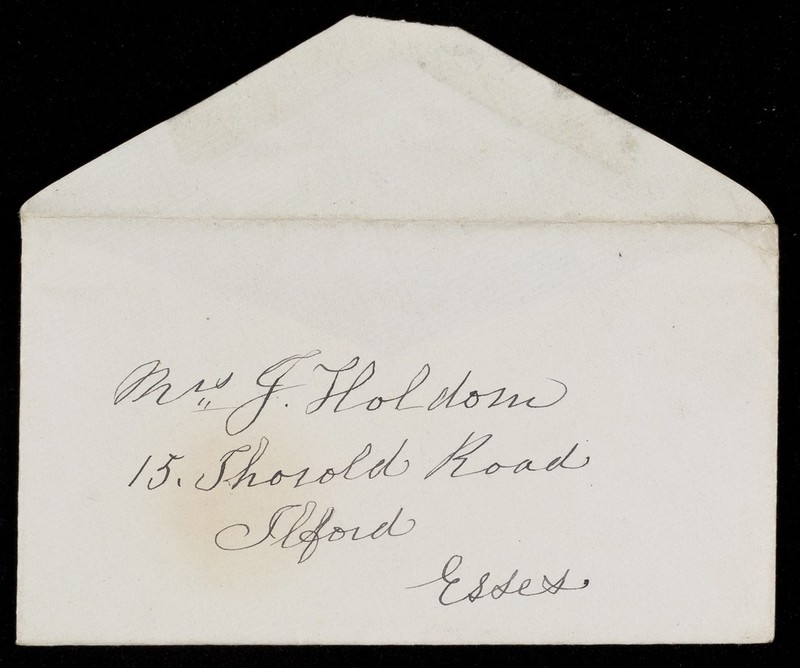 Mrs J. Holdom
15. Thorold Road
Ilford
Essex.